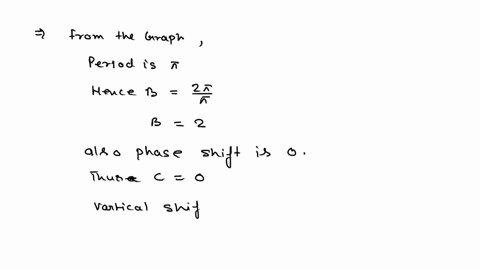 ⇒ from the Graph,
Period is π
Hence B = 2π/π
B = 2
also phase shift is 0.
Thus C = 0
Vartical shif